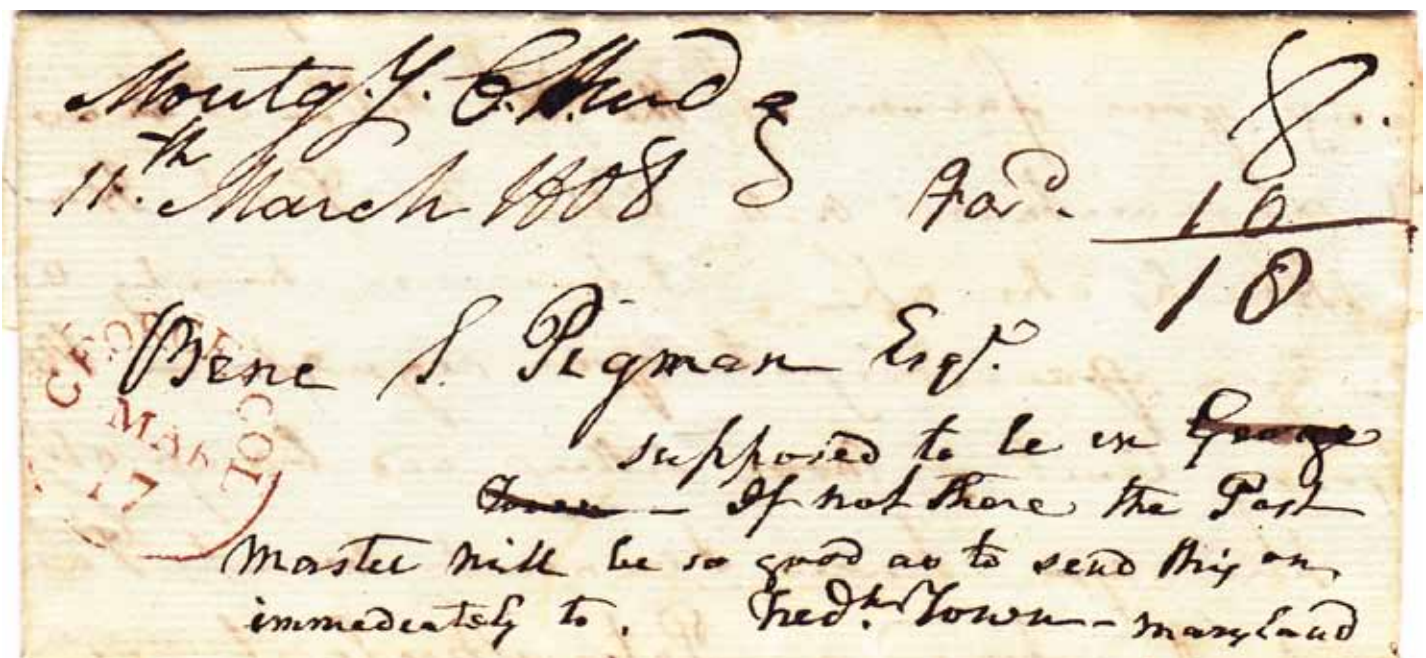 Montg. Y. C. H. Md
11.th March 1808
8
Ford. 10
18
Bene S. Pigman Esqr.
supposed to be in George
Town - If not there the Post
Master will be so good as to send this on
immediately to. Fredk. Town - Maryland
GEORGET COL
MAR
17